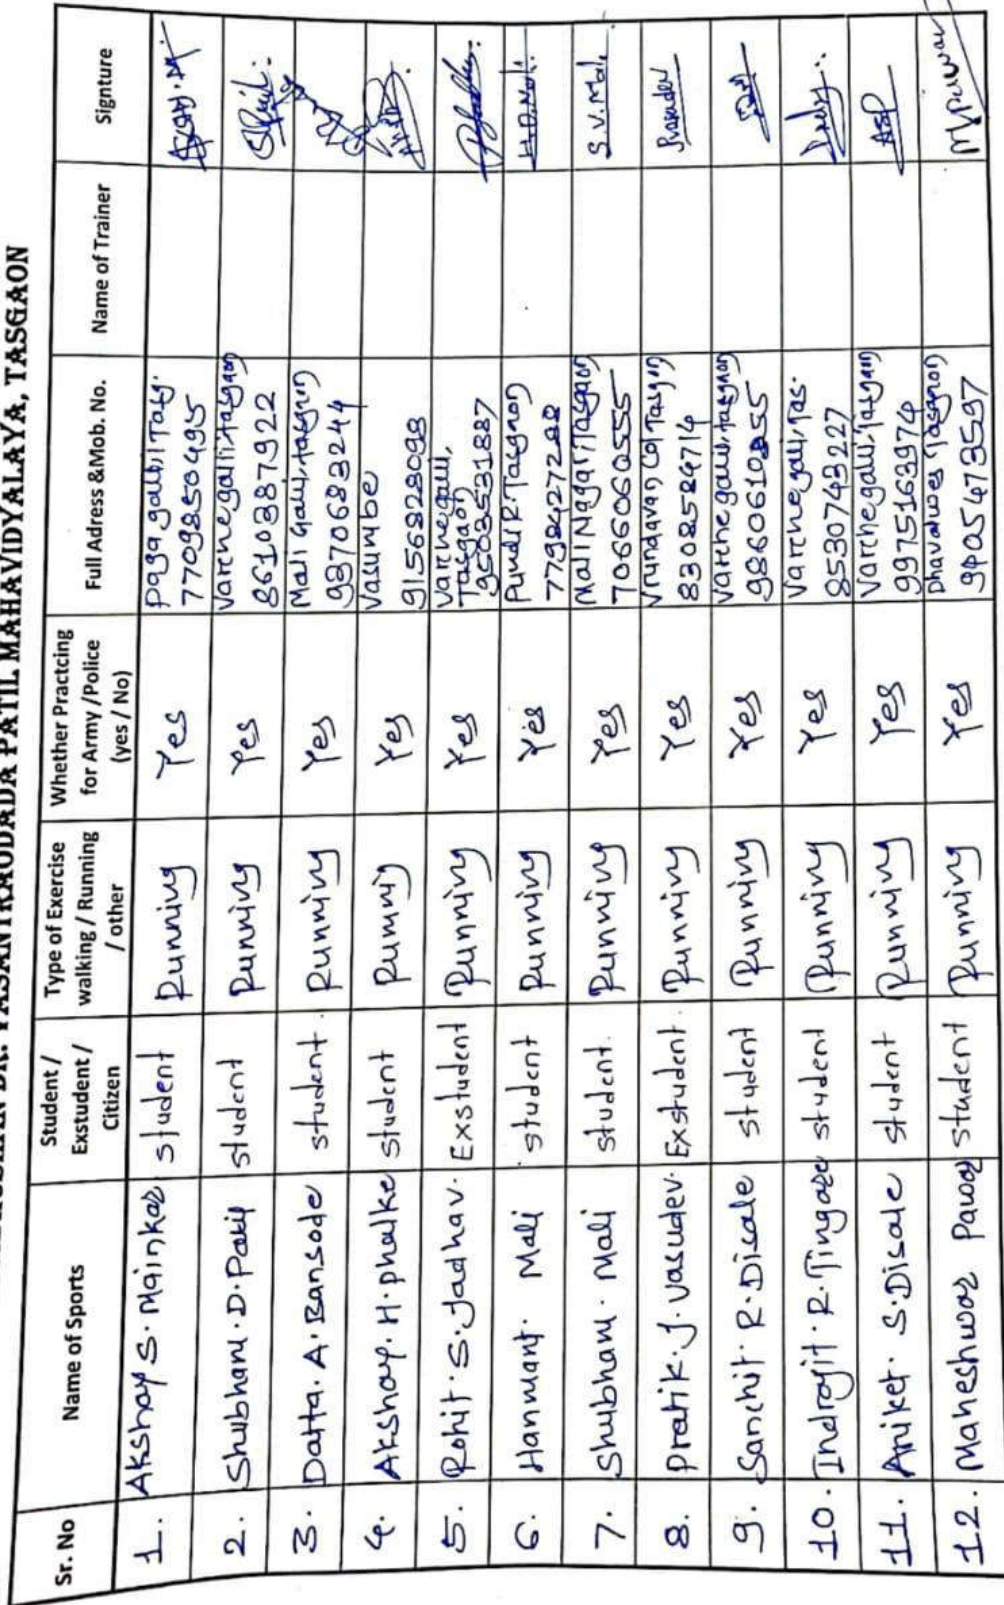 DR. VASANTRAODADA PATIL MAHAVIDYALAYA, TASGAON
Sr. No | Name of Sports | Student / Exstudent / Citizen | Type of Exercise walking / Running / other | Whether Practcing for Army /Police (yes / No) | Full Adress &Mob. No. | Name of Trainer | Signture
1. | Akshay S. Mainkar | student | Running | Yes | Paga galli Tasg. 7709850495
2. | Shubham. D. Patil | student | Running | Yes | Varchegalli, tasgaon 8610387922
3. | Datta. A. Bansode | student. | Running | Yes | Mali Gally, tasgaon 9370683244
4. | Akshay. H. phalke | student | Running | Yes | Vasumbe 9156828098
5. | Rohit. S. Jadhav. | Exstudent | Running | Yes | Varchegalli, Tasgaon 9503531887
6. | Hanmant. Mali | student | Running | Yes | Pundi R. Tasgaon | H.D. Mali
7. | Shubham. Mali | student. | Running | Yes | Mali Nagar, Tasgaon 7066060555 | S.V. Mali
8. | Pratik. J. Vasudev. | Exstudent. | Running | Yes | Vrundavan Col Tasgaon 8308584714
9. | Sanchit. R. Disale | student | Running | Yes | Varchegalli, tasgaon
10. | Indrajit. R. Tingare | student | Running | Yes | Varchegalli, tas. 8530743227
11. | Aniket. S. Disale | student | Running | Yes | Varchegalli, Tasgaon 9975163974 | ASD
12. | Maheshwar Pawar | student | Running | Yes | Tasgaon